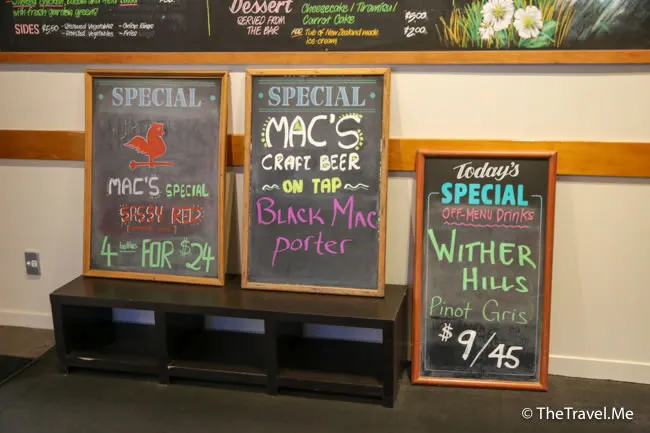 with fresh garden greens
SIDES $5.50 - Steamed Vegetables - Onion Rings
- Roasted Vegetables - Fries
Dessert
SERVED FROM
THE BAR
Cheesecake / Tiramisu /
Carrot Cake
Tub of New Zealand made
ice-cream
SPECIAL
MAC'S SPECIAL
SASSY RED
4 bottles FOR $24
SPECIAL
MAC'S
CRAFT BEER
ON TAP
BLACK MAC
porter
Today's
SPECIAL
OFF-MENU DRINKS
WITHER
HILLS
Pinot Gris
$9/45
© TheTravel.Me